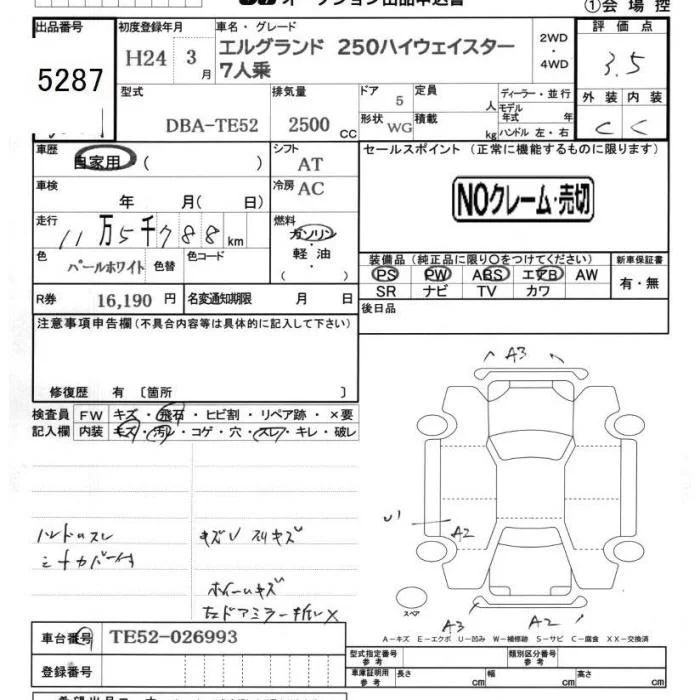 オークション出品申込書
①会場控
出品番号 初度登録年月 車名・グレード 評価点
5287 H24 3月 エルグランド 250ハイウェイスター 7人乗 2WD・4WD 3.5
外装 内装
C C
型式 排気量 ドア 5 定員 人 ディーラー・並行
モデル年式 年式
DBA-TE52 2500cc 形状 WG 積載 kg ハンドル 左・右
車歴 自家用( ) シフト AT セールスポイント(正常に機能するものに限ります)
車検 年 月( 日) 冷房 AC NOクレーム・売切
走行 11万5千788km 燃料 ガソリン・軽油・( )
色 パールホワイト 色替 色コード
装備品(純正品に限り○をつけてください) 新車保証書
PS PW ABS エアB AW 有・無
SR ナビ TV カワ
R券 16,190円 名変通知期限 月 日 後日品
注意事項申告欄(不具合内容等は具体的に記入して下さい)
修復歴 有〔箇所 〕
検査員 FW キズ・飛石・ヒビ割・リペア跡・×要
記入欄 内装 キズ・汚レ・コゲ・穴・スレ・キレ・破レ
A3
U1 A2
ハンドルスレ キズU スリキズ
シートカバー付
ホイールキズ
左ドアミラー折レX
スペア
A3 A2
A-キズ E-エクボ U-凹み W-補修跡 S-サビ C-腐食 XX-交換済
車台番号 TE52-026993
型式指定番号 参考 類別区分番号 参考
登録番号 車庫証明用 参考 長さ cm 幅 cm 高さ cm